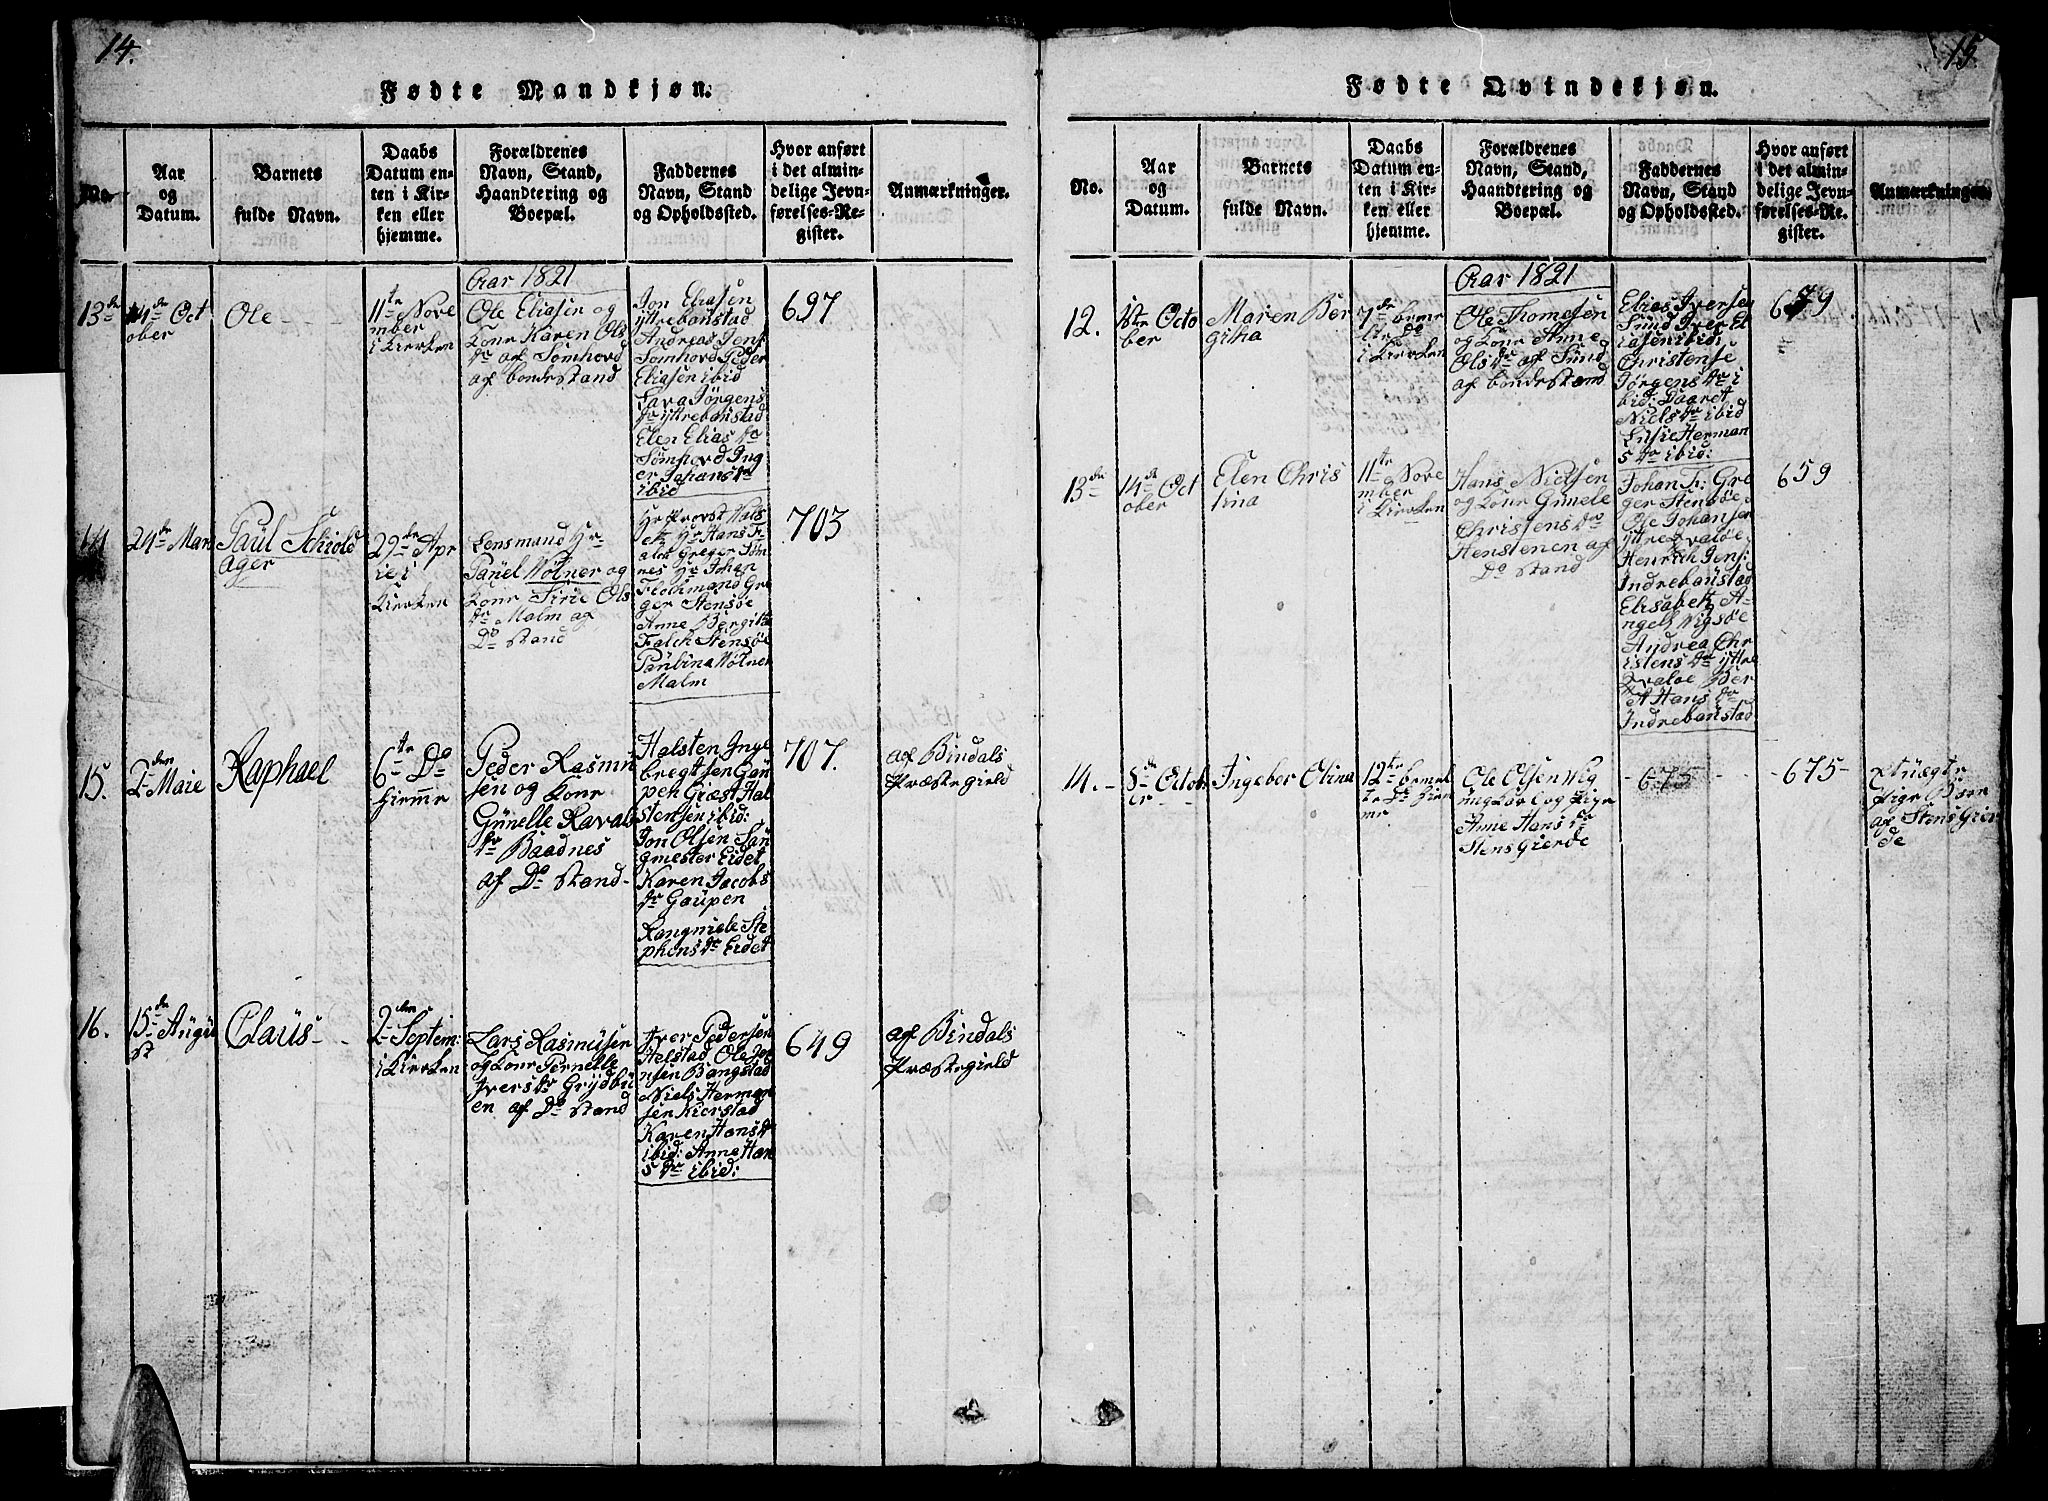 14.
Fødte Mandkjøn.
No.
Aar
og
Datum.
Barnets
fulde Navn.
Daabs
Datum en-
ten i Kir-
ken eller
hjemme.
Forældrenes
Navn, Stand,
Haandtering og
Boepæl.
Faddernes
Navn, Stand
og Opholdssted.
Hvor anført
i det almin-
delige Jevn-
førelses-Re-
gister.
Anmærkninger.
Aar 1821
13de
14de Oct
ober
Ole
11te Nove
mber
i Kierken
Ole Eliasen og
Kone Karen Ols
dr af Sømhovd
af bondestand
Jon Eliasen
yttrebanstad
Andreas Jens
Sømhovd Peder
Eliasen ibid
Sara Jørgens
dr yttrebanstad
Elen Elias dr
Sømhovd Ing
er Johans dr
ibid
697
14
24de Mars
Paul Schiold
ager
29de Apr
iel i
Kierken
Lensmand Hr
Paüel Wölner og
Kone Sirie Ols
dr Malm af
Do stand
Hr Provst
Hr Hans F
alch Greger Søm
nes Hr Johan
Flothmand Gre
ger Stensøe
Anne Bergitte
Falch Stensøe
Paulina Wölner
Malm
703
15.
2den Maie
Raphael
6te Do
hiemme
Peder Rasmu
sen og Kone
Günelle Ravals
dr Baadnes
af Do stand
Halsten Inge
bregtsen Gaü
pen Giæst Hal
stensen ibid:
Jon Olsen San
gmester Eidet
Karen Jacobs
dr Gaüpen
Rangniele Ste
phens dr Eidet
707.
af Bindals
Præstegield
16.
15de Augu
st
Claüs
2den Septem:
i Kierken
Lars Rasmüsen
og Kone Pernelle
Ivers dr Grÿdbü
en af Do stand
Iver Pedersen
Helstad Ole Joh
nsen Bangstad
Niels Herman
sen Kierstad
Karen Hans dr
ibid: Anne Han
s dr ibid:
649
af Bindals
Præstegield
15
Fødte Qvindekjøn.
No.
Aar
og
Datum.
Barnets
fulde Navn.
Daabs
Datum en-
ten i Kir-
ken eller
hjemme.
Forældrenes
Navn, Stand,
Haandtering og
Boepæl.
Faddernes
Navn, Stand
og Opholdssted.
Hvor anført
i det almin-
delige Jevn-
førelses-Re-
gister.
Anmærkninger.
Aar 1821
12.
Octo
ber
Maren Ber
githa
7de bemel
te Do
i Kierken
Ole Thomesen
og Kone Anne
Ols dr af Sund
af bondestand
Elias Iversen
Sund Iver El
iasen ibid:
Christense
Jørgens dr i
bid: Daaret
Niels dr ibid
Lusie Herman
s dr ibid:
679
13de
14de Oct
ober
Elen Chris
tina
11te Nove
mber
i Kierken
Hans Nielsen
og Kone Günele
Christens dr
Henstenen af
Do stand
Johan Fr: Gre
ger Stensøe
Ole Johansen
yttre Qvaløe
Henrich Jens:
Indrebanstad
Elisabeth A
ngels Vigsøe
Andrea Chr
istens dr yttre
Qvaløe Ber
t Hans dr
Indrebanstad
659
14.
8de Octob
er
Ingeber Olina
12te bemel
te Do hiem
me
Ole Olsen Vig
üngkarl og Pige
Anne Hans dr
Stensgierde
675
675
Uægte
Pige Børn
af Stensgier
de